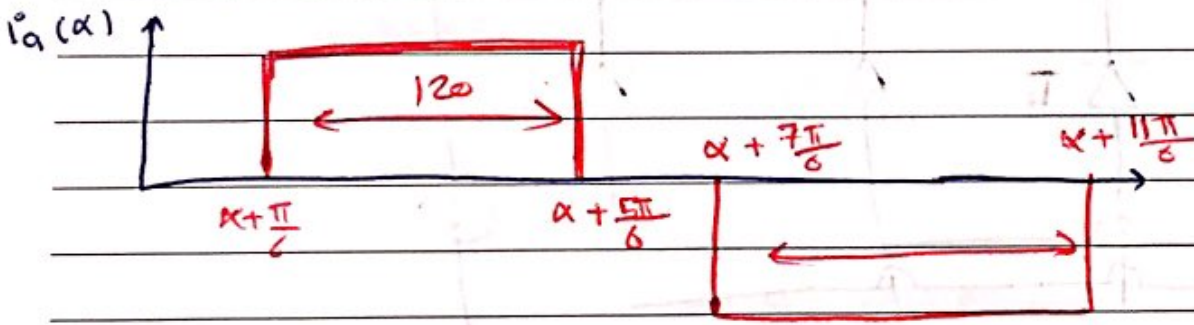 i_a (α)
120
α + 7π/6
α + 11π/6
α + π/6
α + 5π/6